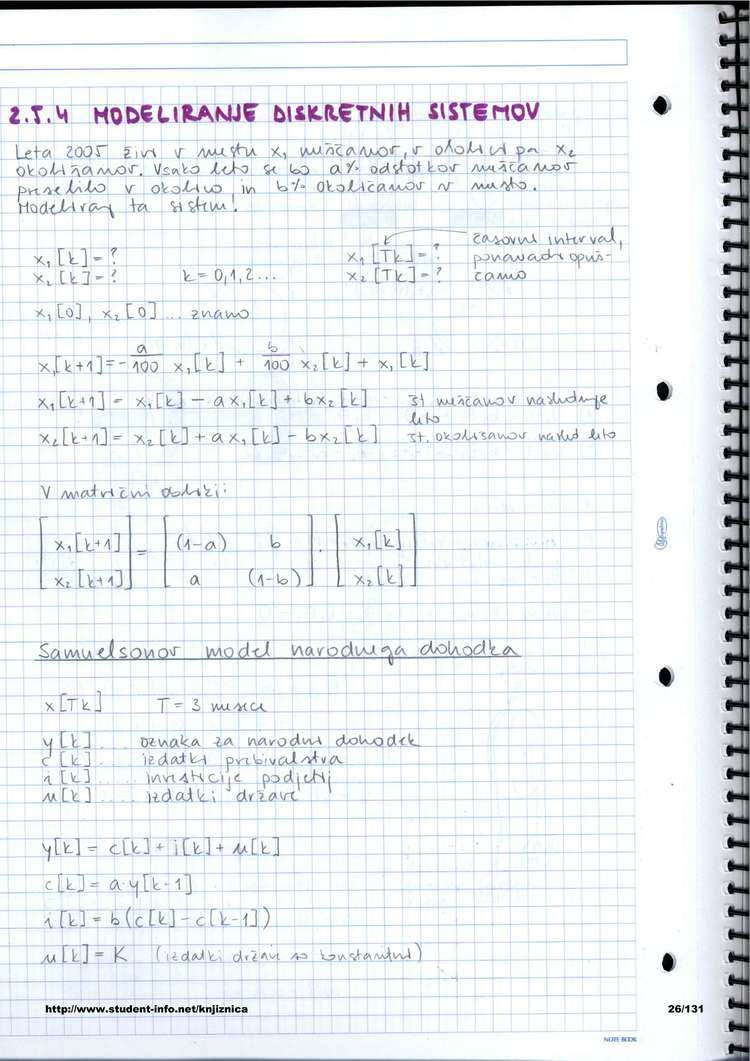 2.5.4 MODELIRANJE DISKRETNIH SISTEMOV
Leta 2005 živi v mestu x₁ meščanov, v okolici pa x₂
okoličanov. Vsako leto se bo a% odstotkov meščanov
preselilo v okolico in b% okoličanov v mesto.
Modeliraj ta sistem!
x₁[k]=?
x₂[k]=? k=0,1,2...
x₁[Tk]=?
x₂[Tk]=?
časovni interval,
ponavadi opuš-
čamo
x₁[0], x₂[0]... znano
x₁[k+1]=-a/100 x₁[k] + b/100 x₂[k] + x₁[k]
x₁[k+1] = x₁[k] - ax₁[k] + bx₂[k] št meščanov naslednje
leto
x₂[k+1] = x₂[k] + ax₁[k] - bx₂[k] št. okoličanov nasled leto
V matrični obliki:
[x₁[k+1]] = [(1-a) b] · [x₁[k]]
[x₂[k+1]] [a (1-b)] [x₂[k]]
Samuelsonov model narodnega dohodka
x[Tk] T = 3 mesece
y[k]... oznaka za narodni dohodek
c[k]... izdatki prebivalstva
i[k]... investicije podjetij
u[k]... izdatki države
y[k] = c[k] + i[k] + u[k]
c[k] = a·y[k-1]
i[k] = b(c[k] - c[k-1])
u[k] = K (izdatki države so konstantni)
http://www.student-info.net/knjiznica
26/131
NOTE BOOK